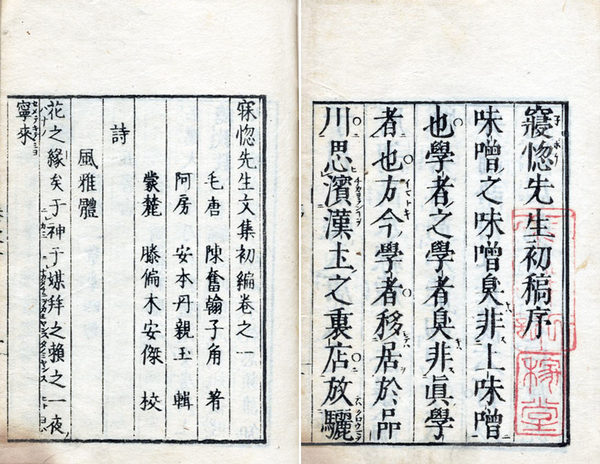 寢惚先生初稿序
味噌之味噌臭非上味噌
也學者之學者臭非眞學
者也方今學者移居於品
川思濱漢土之裏店放驪
寐惚先生文集初編卷之一
毛唐 陳奮翰子角 著
阿房 安本丹親玉 輯
蒙麓 滕偏木安傑 校
詩
風雅體
花之緣矣于神于媒拜之賴之一夜
寧來